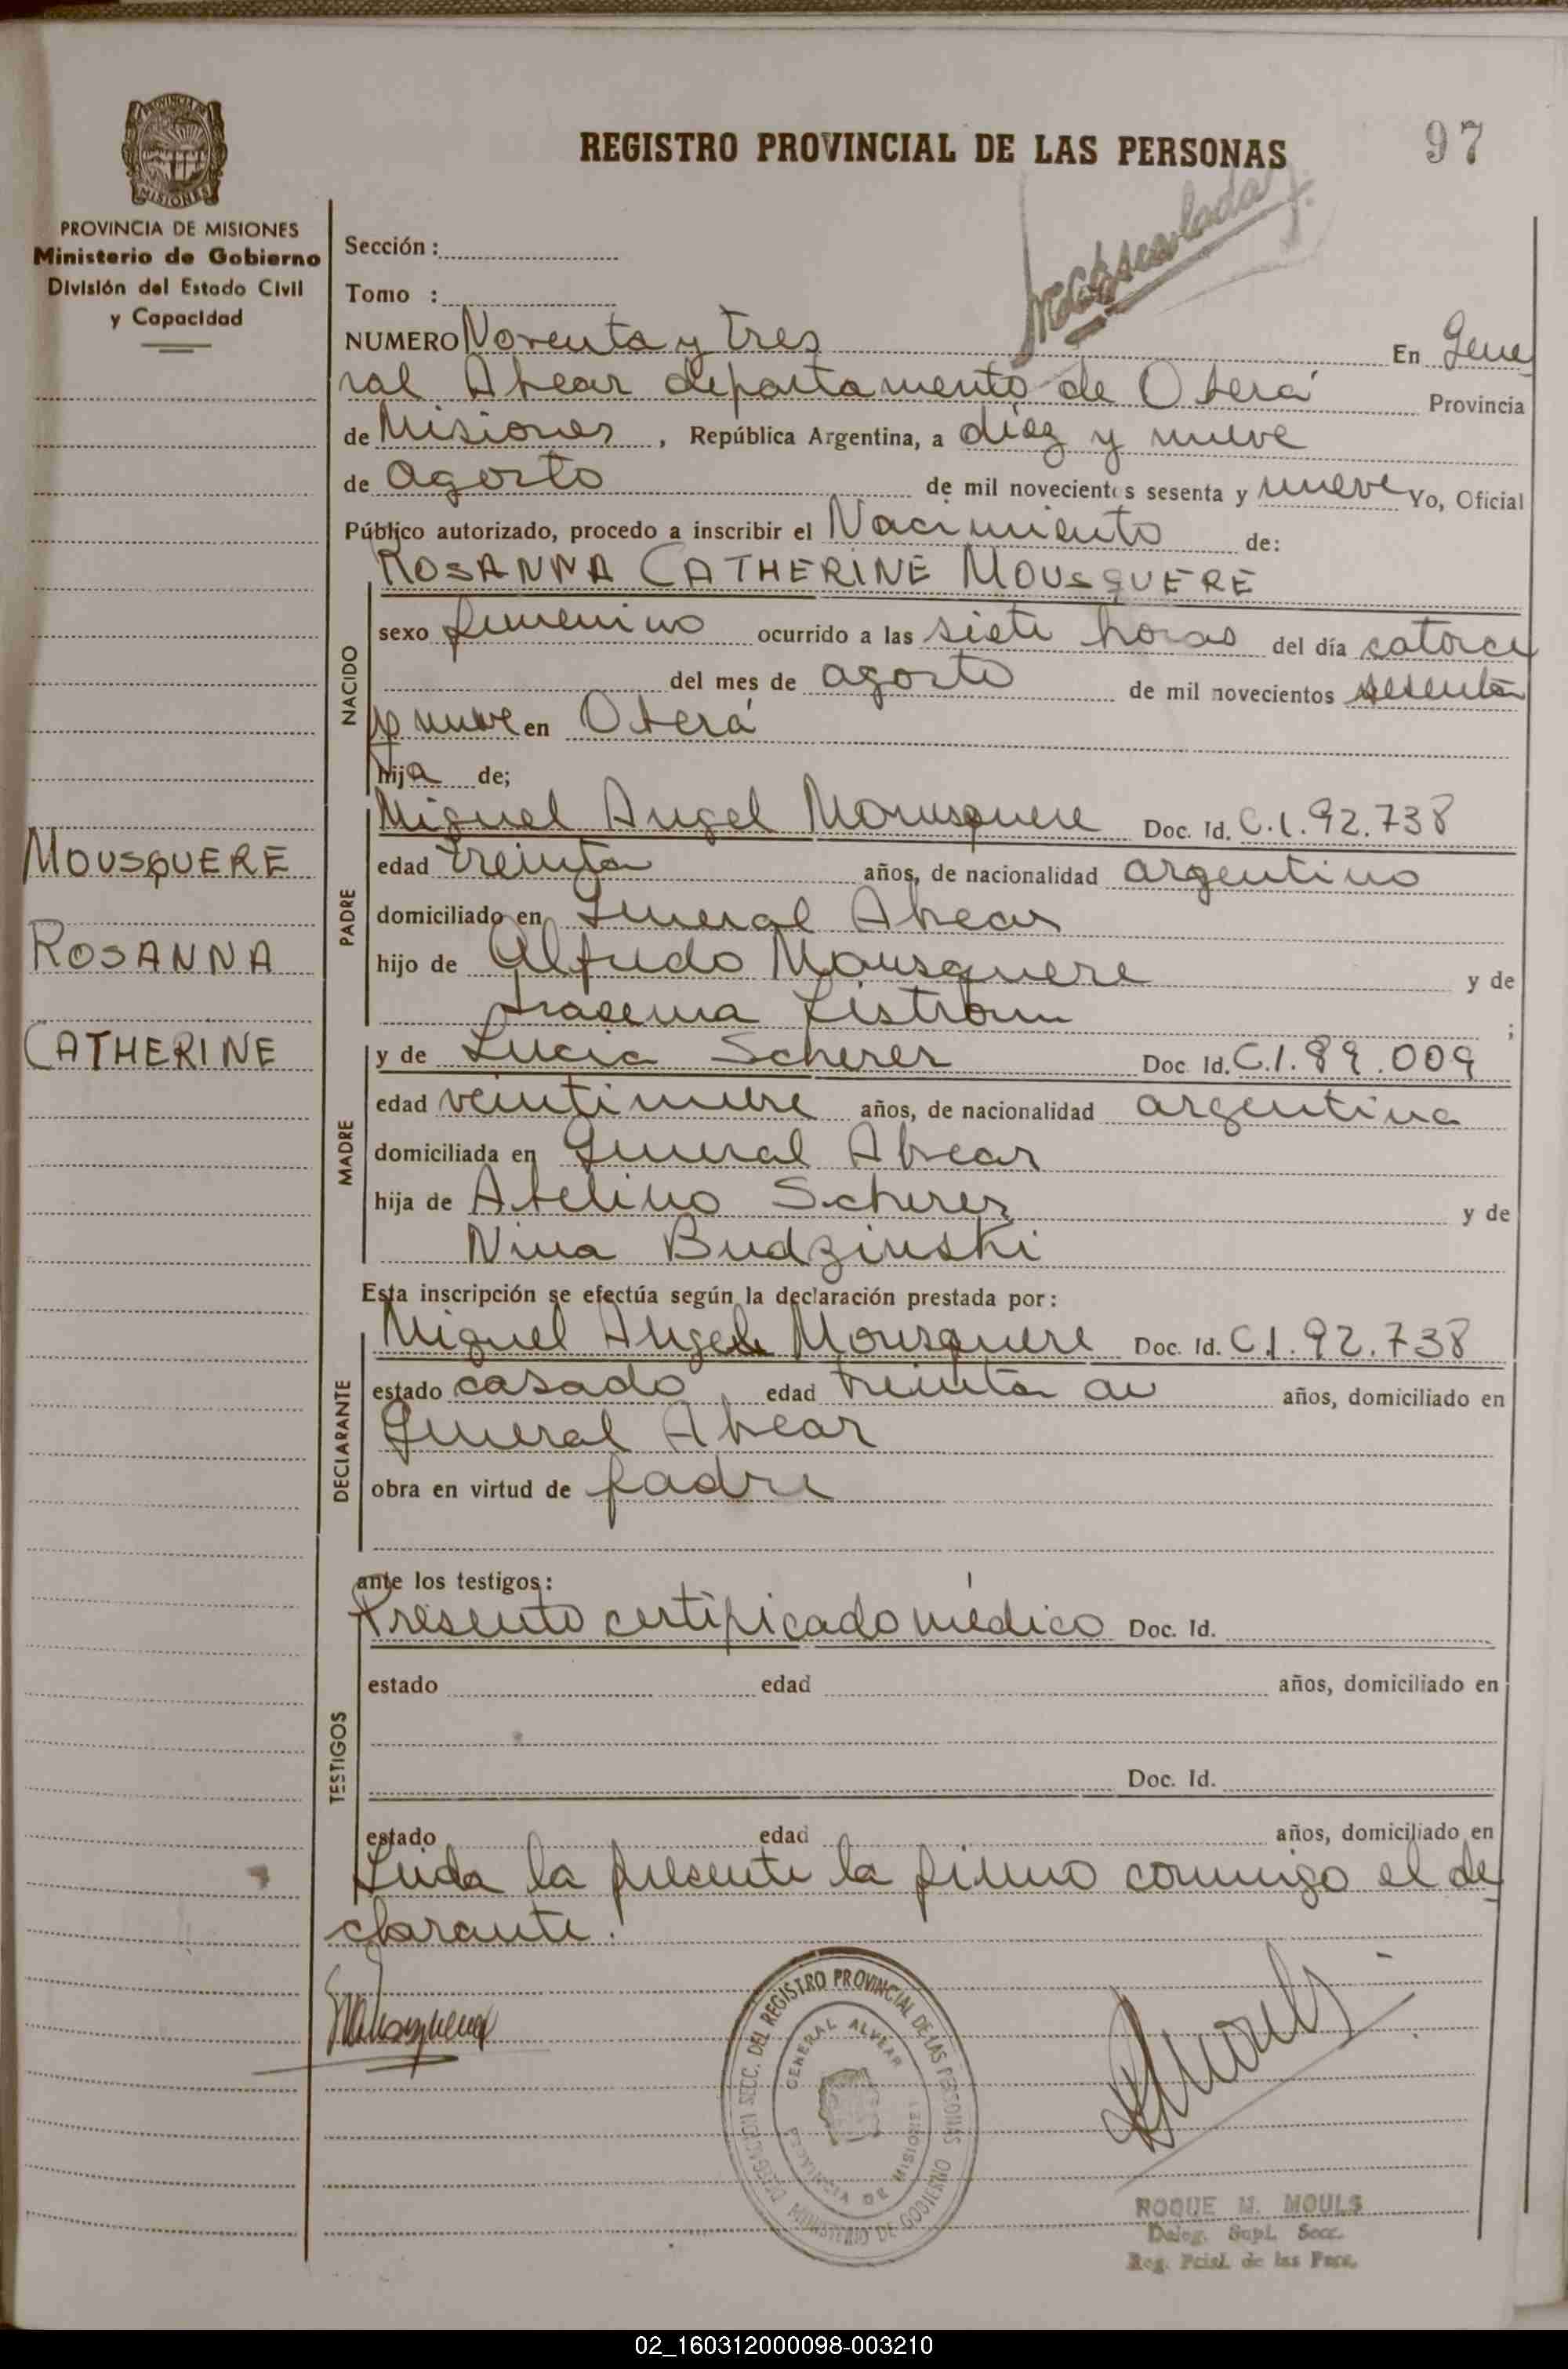 REGISTRO PROVINCIAL DE LAS PERSONAS
97
PROVINCIA DE MISIONES
Ministerio de Gobierno
División del Estado Civil
y Capacidad
Sección :
Tomo :
NUMERO Noventa y tres En Gene
ral Alvear departamento de Oberá Provincia
de Misiones, República Argentina, a diez y nueve
de agosto de mil novecientos sesenta y nueve Yo, Oficial
Público autorizado, procedo a inscribir el Nacimiento de:
ROSANNA CATHERINE MOUSQUERE
NACIDO
sexo femenino ocurrido a las siete horas del día catorce
del mes de agosto de mil novecientos sesenta
y nueve en Oberá
hija de;
PADRE
Miguel Angel Mousquere Doc. Id. C.I. 92.738
edad treinta años, de nacionalidad argentino
domiciliado en General Alvear
hijo de Alfredo Mousquere y de
Iracema Listrom ;
MADRE
y de Lucia Scherer Doc. Id. C.I. 89.009
edad veintinueve años, de nacionalidad argentina
domiciliada en General Alvear
hija de Abelino Scherer y de
Nina Budzinski
MOUSQUERE
ROSANNA
CATHERINE
Esta inscripción se efectúa según la declaración prestada por:
DECLARANTE
Miguel Angel Mousquere Doc. Id. C.I. 92.738
estado casado, edad treinta años, domiciliado en
General Alvear
obra en virtud de padre
ante los testigos:
TESTIGOS
Presento certificado médico Doc. Id.
estado edad años, domiciliado en
Doc. Id.
estado edad años, domiciliado en
Leida la presente la firmo conmigo el de
clarante.
DELEGACION SECC. DEL REGISTRO PROVINCIAL DE LAS PERSONAS
GENERAL ALVEAR
PROVINCIA DE MISIONES
MINISTERIO DE GOBIERNO
ROQUE M. MOULS
Deleg. Supl. Secc.
Reg. Pcial. de las Pers.
02_160312000098-003210